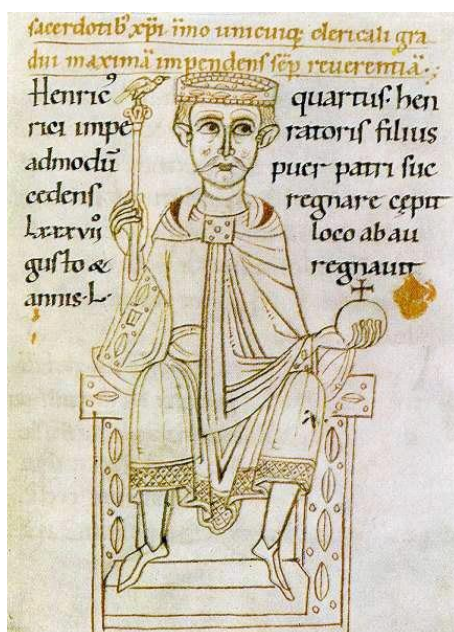 sacerdotib᾽ xp̄i im̄o unicuiq; clericali gra
dui maximā impendens sēp reverentiā.
Henric᾽ quartus. hen
rici impe ratoris filius
admodū puer patri suc
cedens regnare cępit
lxxxvii loco ab au
gusto & regnauit
annis. L.